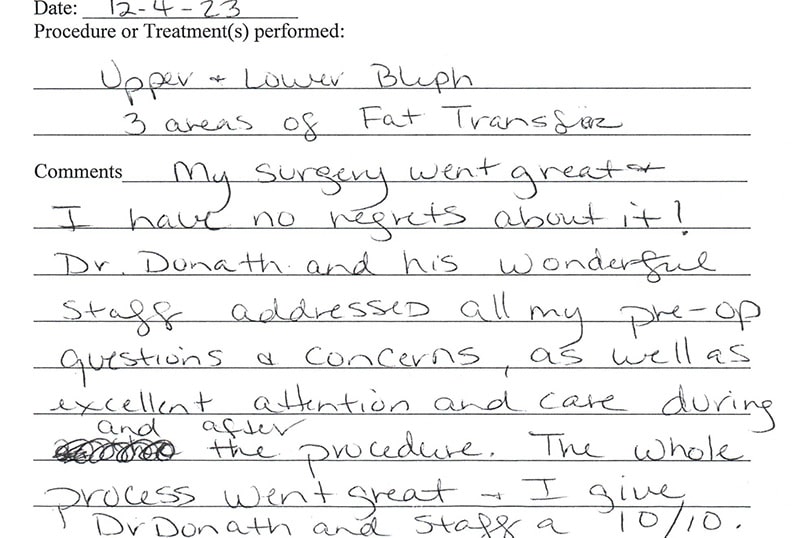 Date: 12-4-23
Procedure or Treatment(s) performed:
Upper & Lower Bleph
3 areas of Fat Transfer
Comments My surgery went great &
I have no regrets about it!
Dr. Donath and his wonderful
staff addressed all my pre-op
questions & concerns, as well as
excellent attention and care during
and after
the procedure. The whole
process went great & I give
Dr Donath and staff a 10/10.